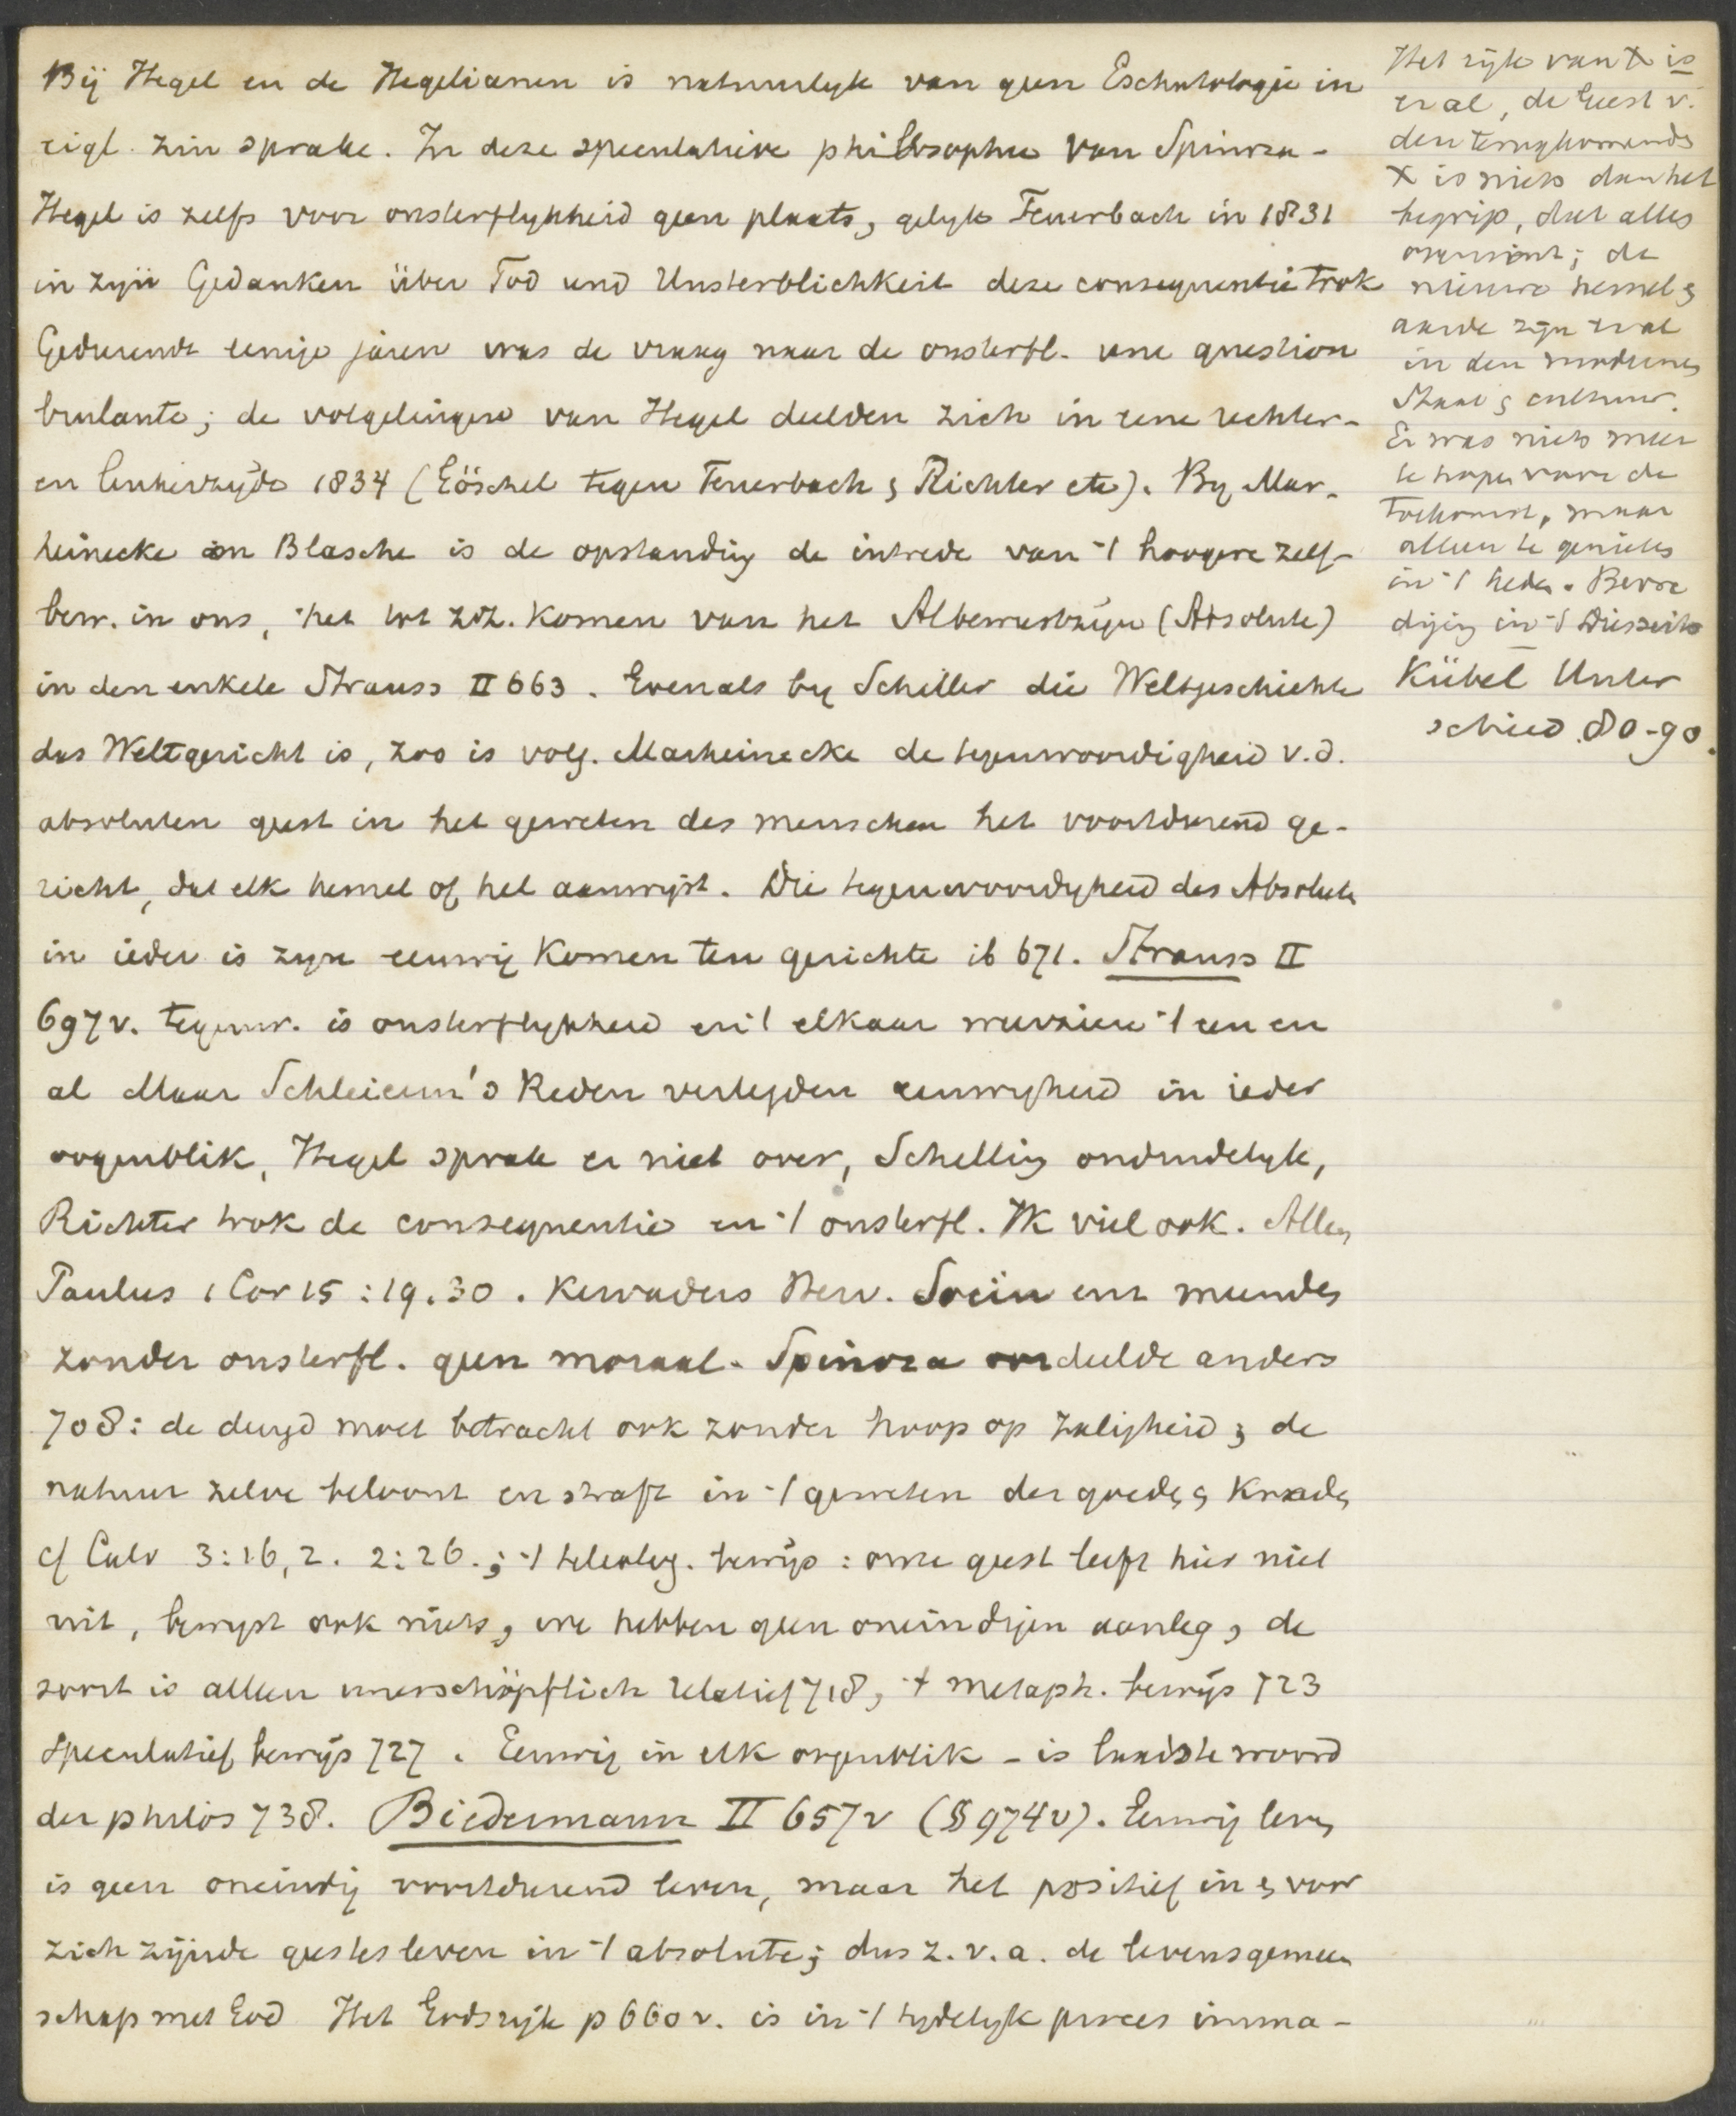 Bij Hegel en de Hegelianen is natuurlyk van geen Eschatologie in
eigl. zin sprake. In deze speculatieve philosophie van Spinoza-
Hegel is zelfs voor onsterflykheid geen plaats, gelyk Feuerbach in 1831
in zyn Gedanken über Tod und Unsterblichkeit deze consequentie trok
Gedurende eenige jaren was de vraag naar de onsterfl. une question
brulante; de volgelingen van Hegel deelden zich in eene rechter-
en linkerzyde 1834 (Göschel tegen Feuerbach & Richter etc). By Mar-
heinecke en Blasche is de opstanding de intrede van 't hoogere zelf-
bew. in ons, het tot zdz. komen van het Albewustzijn (Absolute)
in den enkele Strauss II 663. Evenals by Schiller die Weltgeschichte
das Weltgericht is, zoo is volg. Marheinecke de tegenwoordigheid v.d.
absoluten geest in het geweten des menschen het voortdurend ge-
richt, dat elk hemel of hel aanwijst. Die tegenwoordigheid des Absolute
in ieder is zyn eeuwig komen ten gerichte ib 671. Strauss II
697v. tegenw. is onsterflykheid en 't elkaar weerzien 't een en
al Maar Schleierm's Reden verlegden eeuwigheid in ieder
oogenblik, Hegel sprak er niet over, Schelling onduidelyk,
Richter trok de consequentie en 't onsterfl. IK viel ook. Alleen
Paulus 1 Cor 15:19.30. Kerkvaders Herv. Socin enz meenden
zonder onsterfl. geen moraal. Spinoza oordeelde anders
708: de deugd moet betracht ook zonder hoop op zaligheid; de
natuur zelve beloont en straft in 't geweten der goeden & kwaden
cf Calv 3:16,2. 2:26.; 't teleolog. bewijs: onze geest leeft hier niet
uit, bewyst ook niets, we hebben geen oneindigen aanleg, de
soort is alleen unerschöpflich relatief 718, 't metaph. bewijs 723
speculatief bewijs 727. Eeuwig in elk oogenblik - is laatste woord
der philos 738. Biedermann II 657v (§ 974v). Eeuwig leven
is geen oneindig voortdurend leven, maar het positief in & voor
zich zijnde geestesleven in 't absolute; dus z.v.a. de levensgemeen
schap met God Het Godsrijk p 660v. is in 't tydelyk proces imma-
Het rijk van X is
er al, de Geest v.
den terugkomende
X is niets dan het
begrip, dat alles
overwint; de
nieuwe hemel &
aarde zijn er al
in den modernen
Staat & cultuur.
Er was niets meer
te hopen voor de
toekomst, maar
alleen te genieten
in 't heden. Bevre
diging in 't Diesseits
Kübel Unter
schied 80-90.